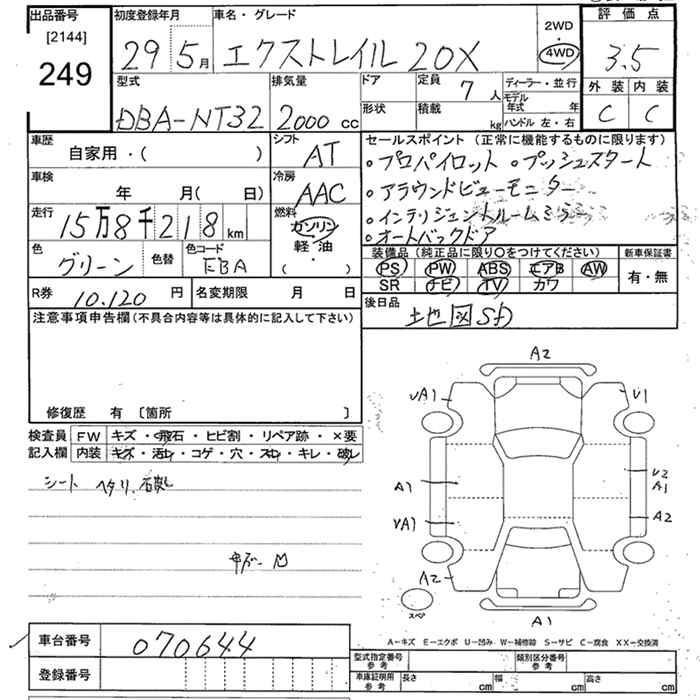 出品番号
[2144]
249
初度登録年月
29 5月
車名・グレード
エクストレイル 20X
2WD
4WD
評価点
3.5
外装 内装
C C
型式
DBA-NT32
排気量
2000 cc
ドア
形状
定員
7人
積載
kg
ディーラー・並行
モデル年式 年
ハンドル 左・右
車歴
自家用・( )
シフト
AT
車検
年 月( 日)
冷房
AAC
走行
15万8千218 km
燃料
ガソリン
軽油
( )
色
グリーン
色替
色コード
EBA
R券
10.120円
名変期限 月 日
セールスポイント(正常に機能するものに限ります)
・プロパイロット ・プッシュスタート
・アラウンドビューモニター
・インテリジェントルームミラー
・オートバックドア
装備品(純正品に限り○をつけてください)
PS PW ABS エアB AW
SR ナビ TV カワ
新車保証書
有・無
後日品
地図SD
注意事項申告欄(不具合内容等は具体的に記入して下さい)
修復歴 有〔箇所 〕
検査員 FW キズ・飛石・ヒビ割・リペア跡・×要
記入欄 内装 キズ・汚れ・コゲ・穴・スレ・キレ・破レ
シート ヘタリ
A2
UA1
U1
A1
U2
A1
UA1
A2
A2
スペア
A1
A-キズ E-エクボ U-凹み W-補修跡 S-サビ C-腐食 XX-交換済
車台番号
070644
登録番号
型式指定番号
参考
類別区分番号
参考
車庫証明用
参考
長さ cm 幅 cm 高さ cm